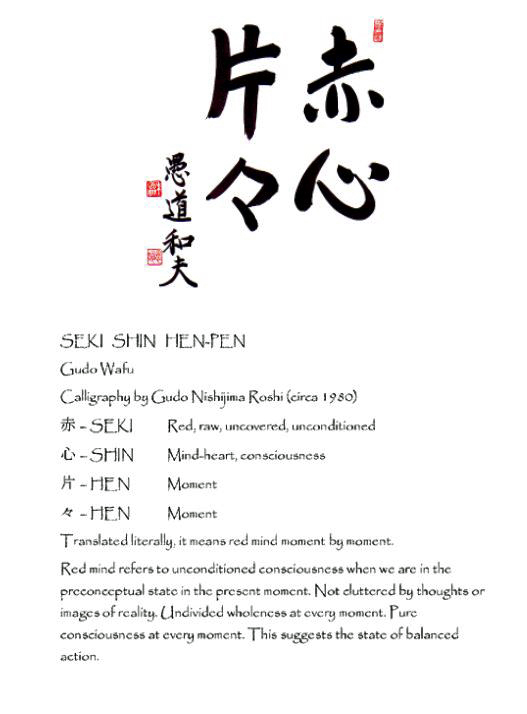 赤心
片々
愚道和夫
SEKI SHIN HEN-PEN
Gudo Wafu
Calligraphy by Gudo Nishijima Roshi (circa 1980)
赤 – SEKI Red, raw, uncovered, unconditioned
心 – SHIN Mind-heart, consciousness
片 – HEN Moment
々 – HEN Moment
Translated literally, it means red mind moment by moment.
Red mind refers to unconditioned consciousness when we are in the
preconceptual state in the present moment. Not cluttered by thoughts or
images of reality. Undivided wholeness at every moment. Pure
consciousness at every moment. This suggests the state of balanced
action.